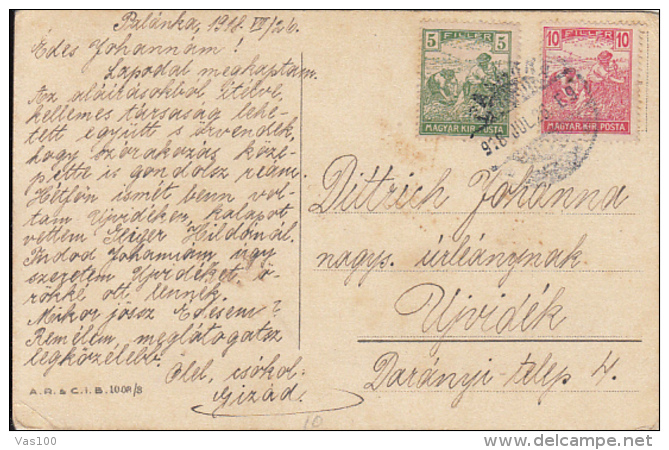 Palánka, 1918. VII/26.
Édes Johannám!
Lapodat megkaptam.
Az aláírásokból ítélve,
kellemes társaság lehe-
tett együtt s örvendek,
hogy szórakozás köze-
pette is gondolsz reám.
Hétfőn ismét benn vol-
tam Ujvidéken, kalapot
vettem Geiger Hildánál.
Tudod Johannám, úgy
szeretem Ujvidéket ö-
rökké ott lennék.
Mikor jösz Édesem?
Remélem, meglátogatsz
legközelebb.
Ölel, csókol
Gizád.
A. R. & C. i. B. 1008/8
10
5 FILLER 5
MAGYAR KIR. POSTA
10 FILLER 10
MAGYAR KIR. POSTA
918 JUL
Dittrich Johanna
nagys. úrleánynak
Ujvidék
Darányi-telep 4.
Vas100
delcampe.net